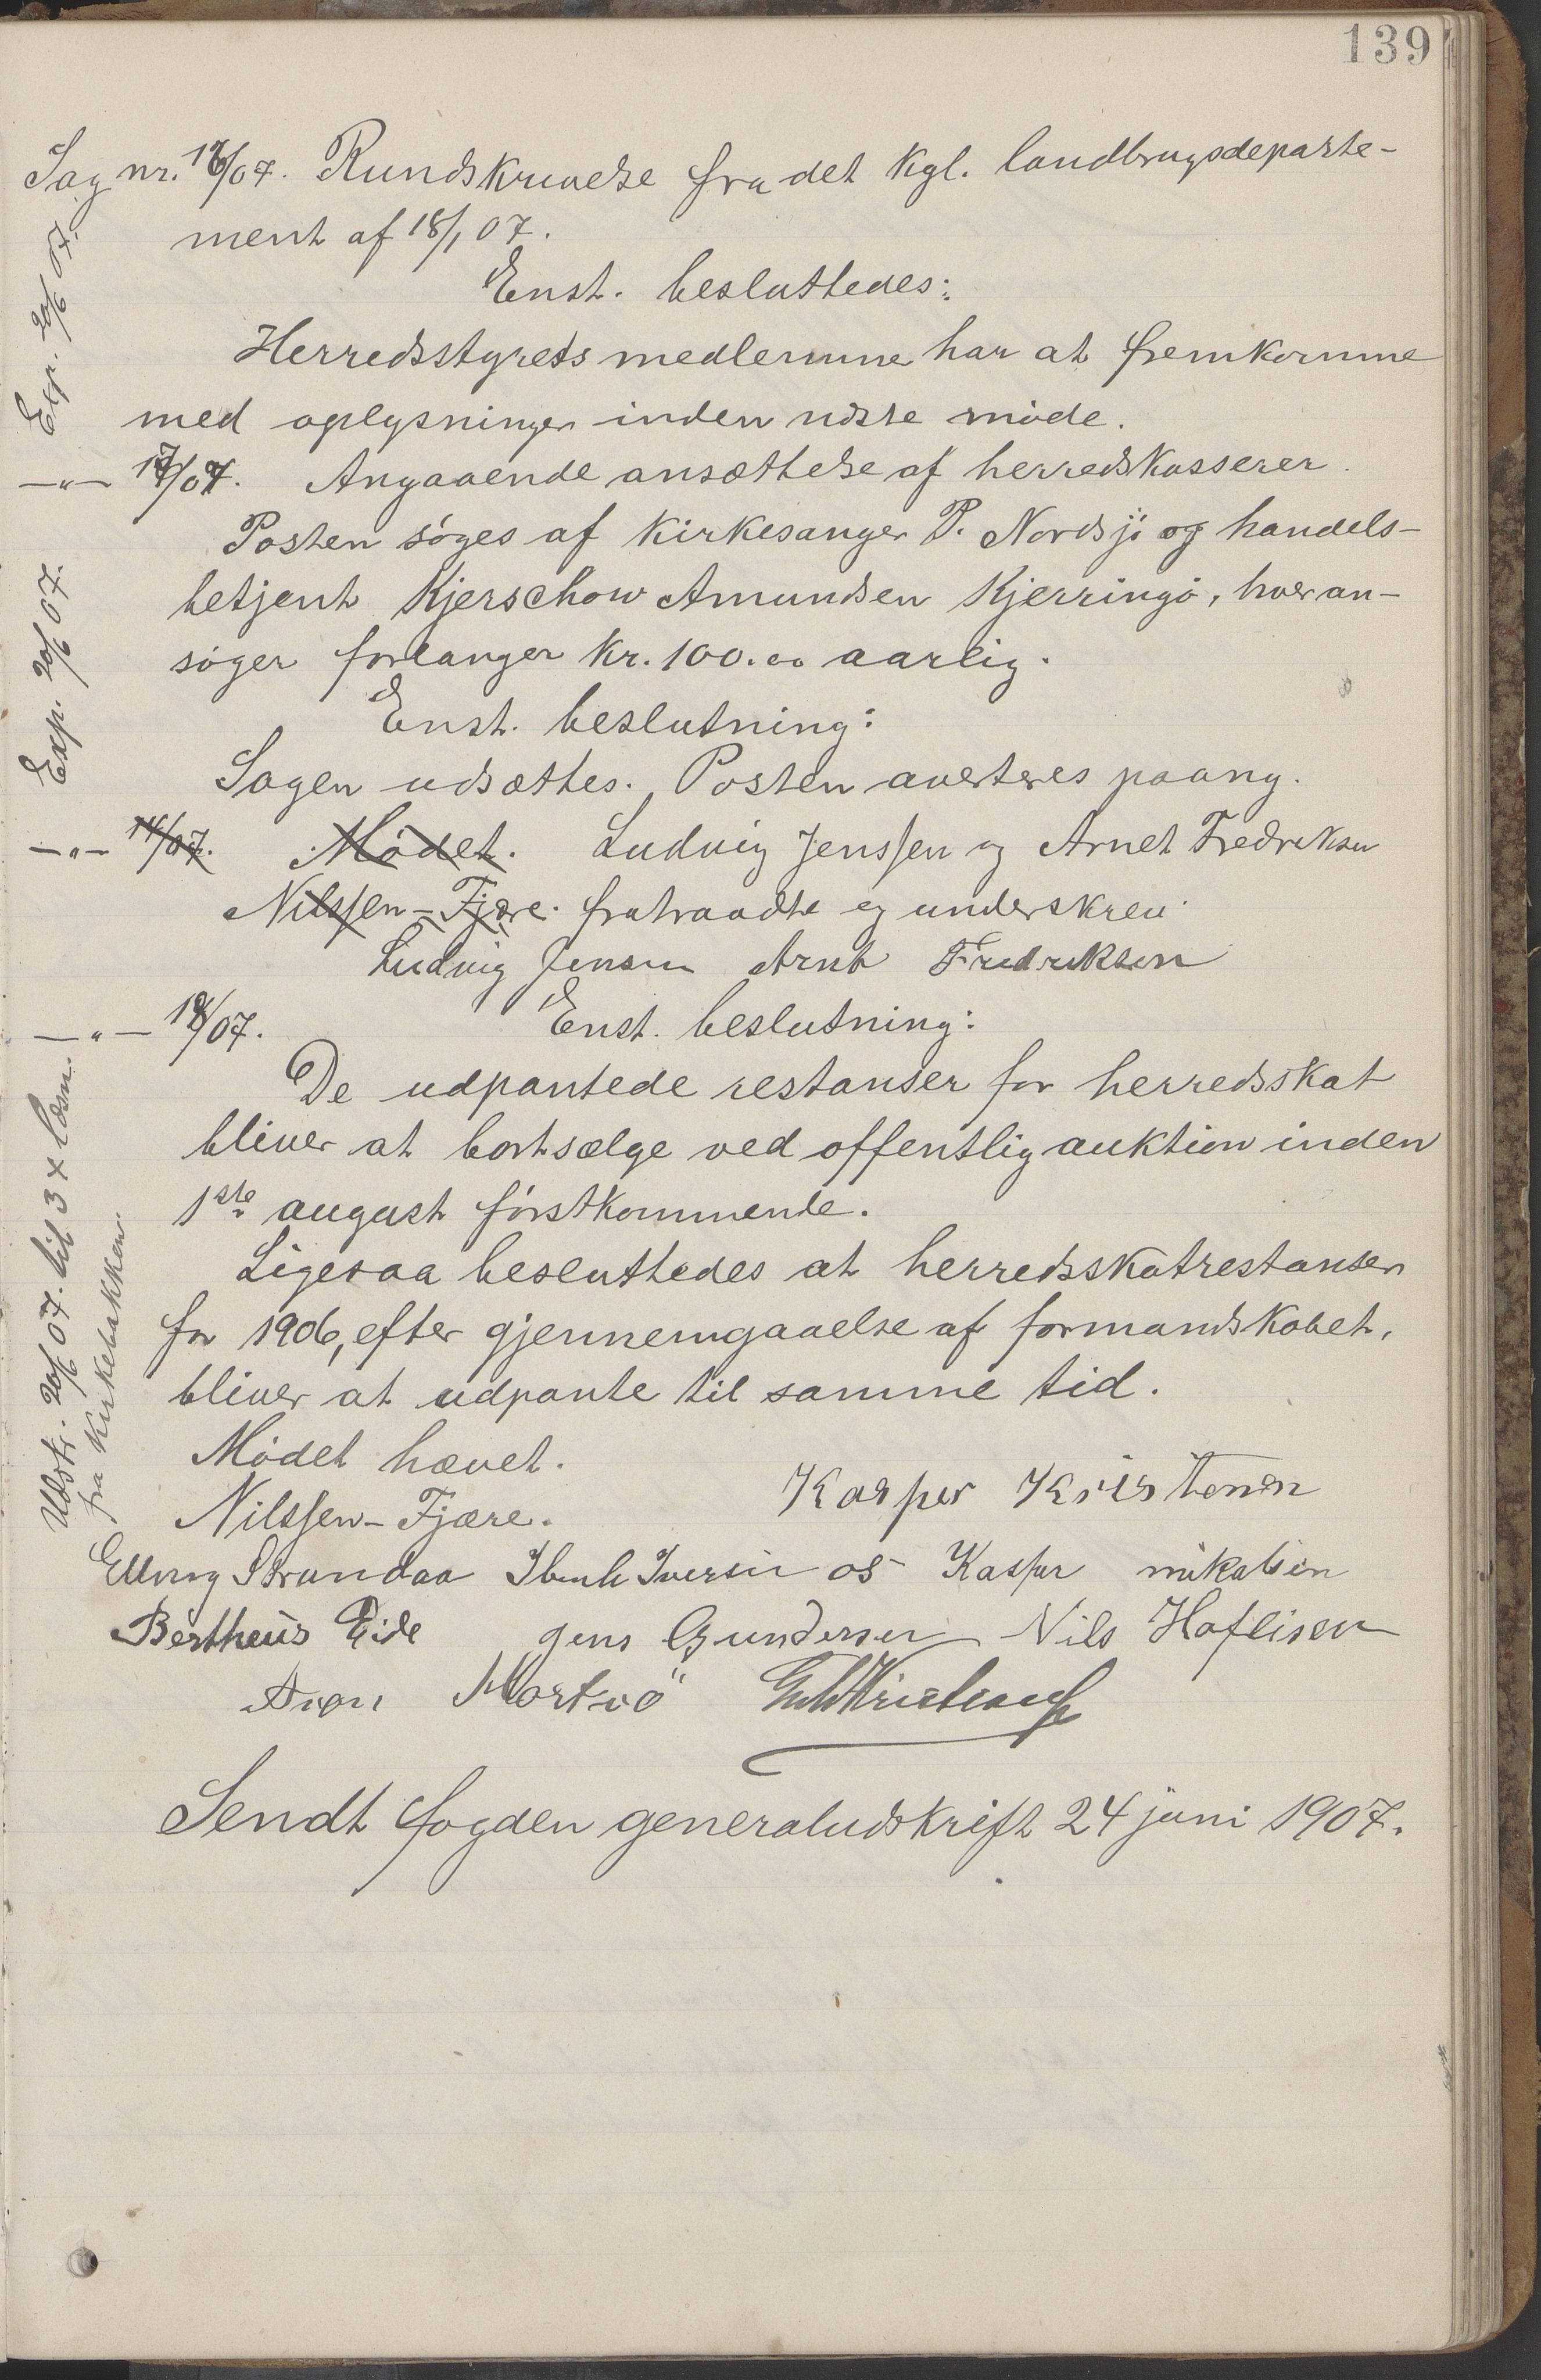 139
Sag nr. 16/07. Rundskrivelse fra det kgl. landbrugsdeparte-
ment af 18/1 07.
Enst. besluttedes:
Herredsstyrets medlemmer har at fremkomme
med oplysninger inden næste möde.
Exp. 20/6 07.
—„— 17/07. Angaaende ansættelse af herredskasserer.
Posten söges af kirkesanger P. Nordsjö og handels-
betjent Kjerschow Amundsen Kjerringö, hver an-
söger forlanger kr. 100.00 aarlig.
Enst. beslutning:
Sagen udsættes. Posten averteres paany.
Exp. 20/6 07.
—„— 14/07. Mödet. Ludvig Jenssen og Arnet Fredriksen
Nilssen-Fjære. fratraadte og underskrev.
Ludvig Jensen Arnt Fredriksen
—„— 18/07. Enst. beslutning:
De udpantede restanser for herredsskat
bliver at bortsælge ved offentlig auktion inden
1ste august förstkommende.
Ligesaa besluttedes at herredsskatrestanser
for 1906, efter gjennemgaaelse af formandskabet,
bliver at udpante til samme tid.
Udskr. 20/6 07. til 3 x læsn.
fra kirkebakken.
Mödet hævet.
Nilssen-Fjære. Kasper Kristensen
Elling Strandaa Iversen os Kasper mikalsen
Bertheus Eide Jens Gundersen Nils Haflisen
Aron Mortvö
Sendt fogden generaludskrift 24 juni 1907.